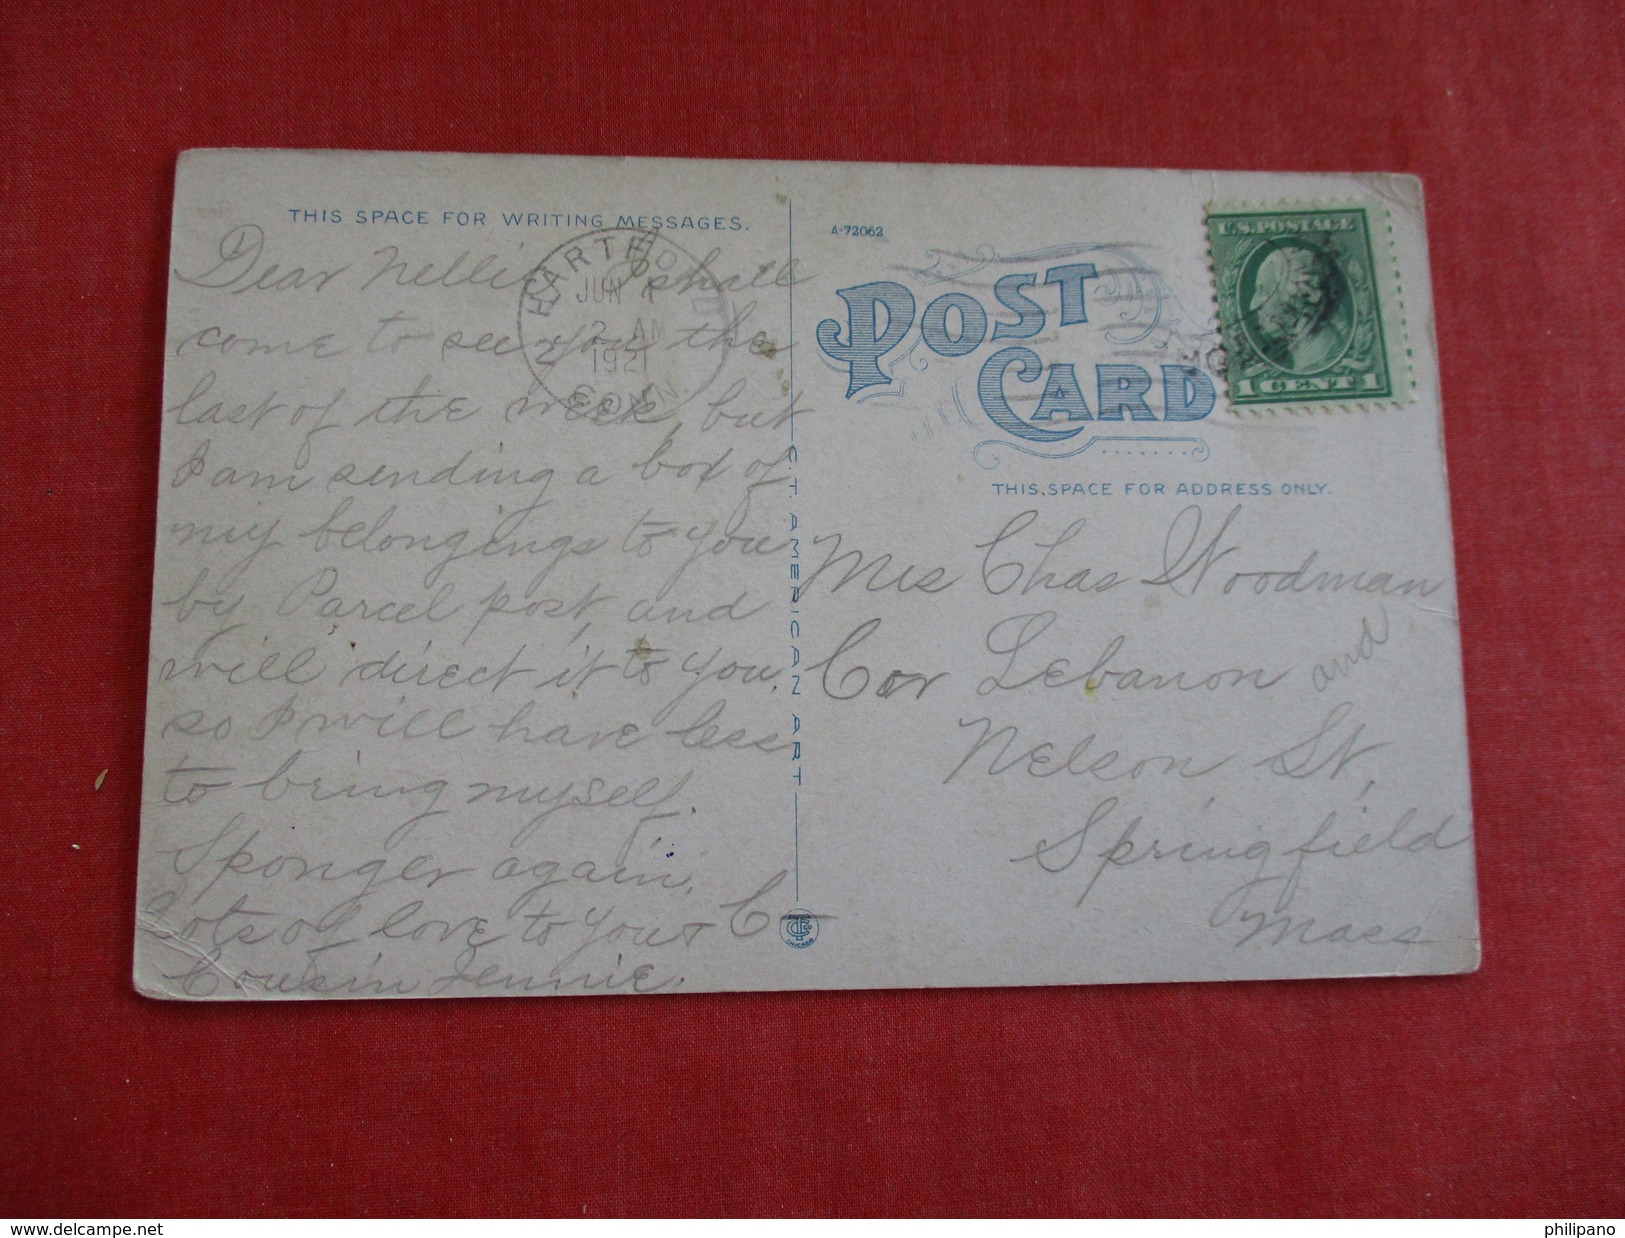 THIS SPACE FOR WRITING MESSAGES.
Dear Nellie I shall
come to see you the
last of the week, but
I am sending a box of
my belongings to you
by Parcel post, and
will direct it to you.
so I will have less
to bring myself.
Sponger again.
Lots of love to you & C
Cousin Jennie.
HARTFORD
JUN 4
2 AM
1921
CONN.
C.T. AMERICAN ART
CHICAGO
A-72062
POST
CARD
U.S. POSTAGE
1 CENT 1
THIS SPACE FOR ADDRESS ONLY.
Mrs Chas Woodman
Cor Lebanon and
Nelson St,
Springfield
Mass
delcampe.net
philipano